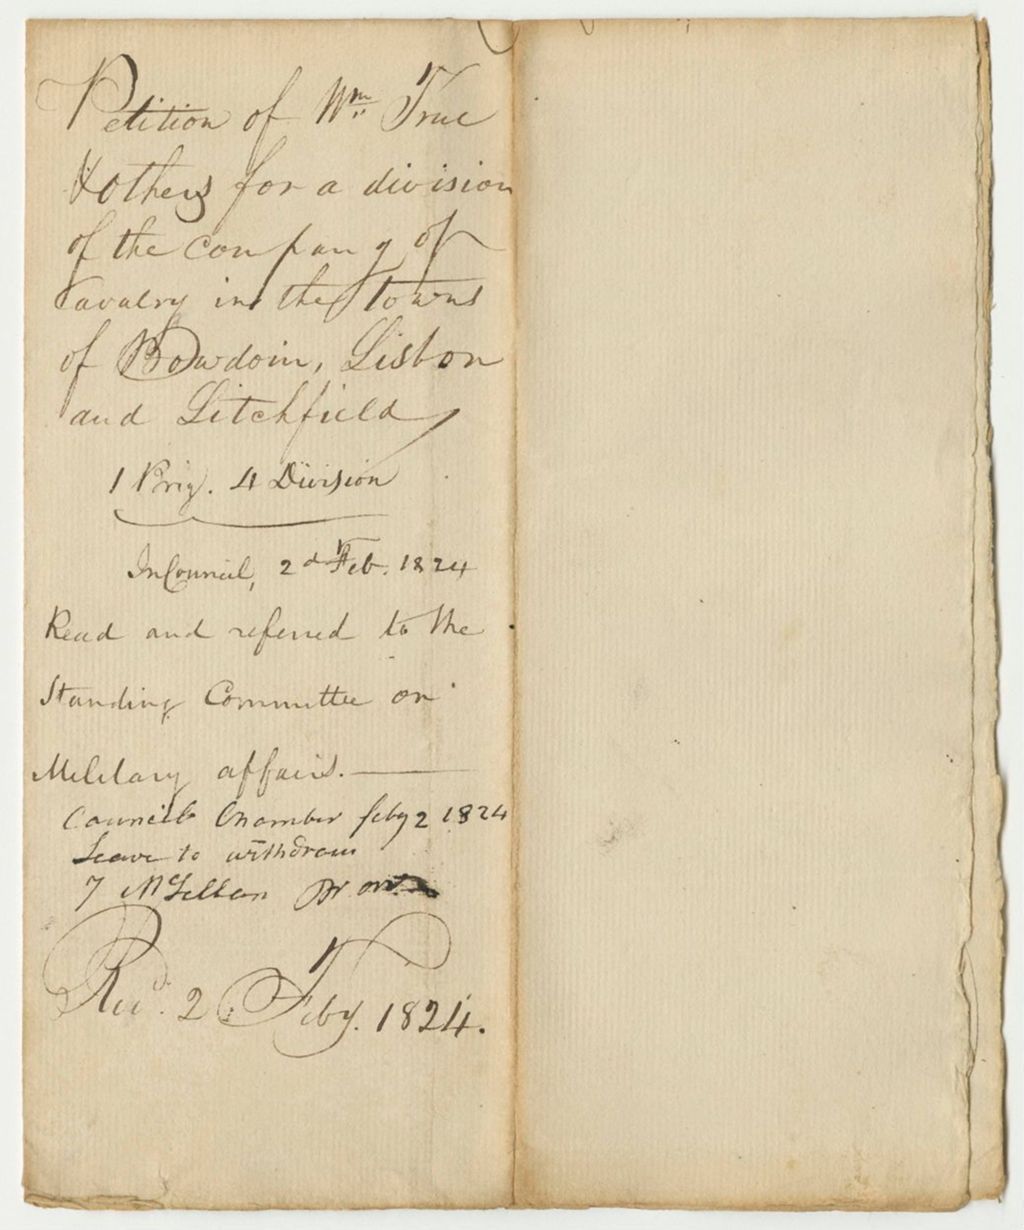 Petition of Wm. True
& others for a division
of the company of
Cavalry in the Towns
of Bowdoin, Lisbon
and Litchfield
1 Brig. 4 Division
In Council, 2d Feb. 1824
Read and referred to the
Standing Committee on
Military affairs.
Council Chamber feby 2 1824
Leave to withdraw
McLellan
Recd. 2 Feby. 1824.